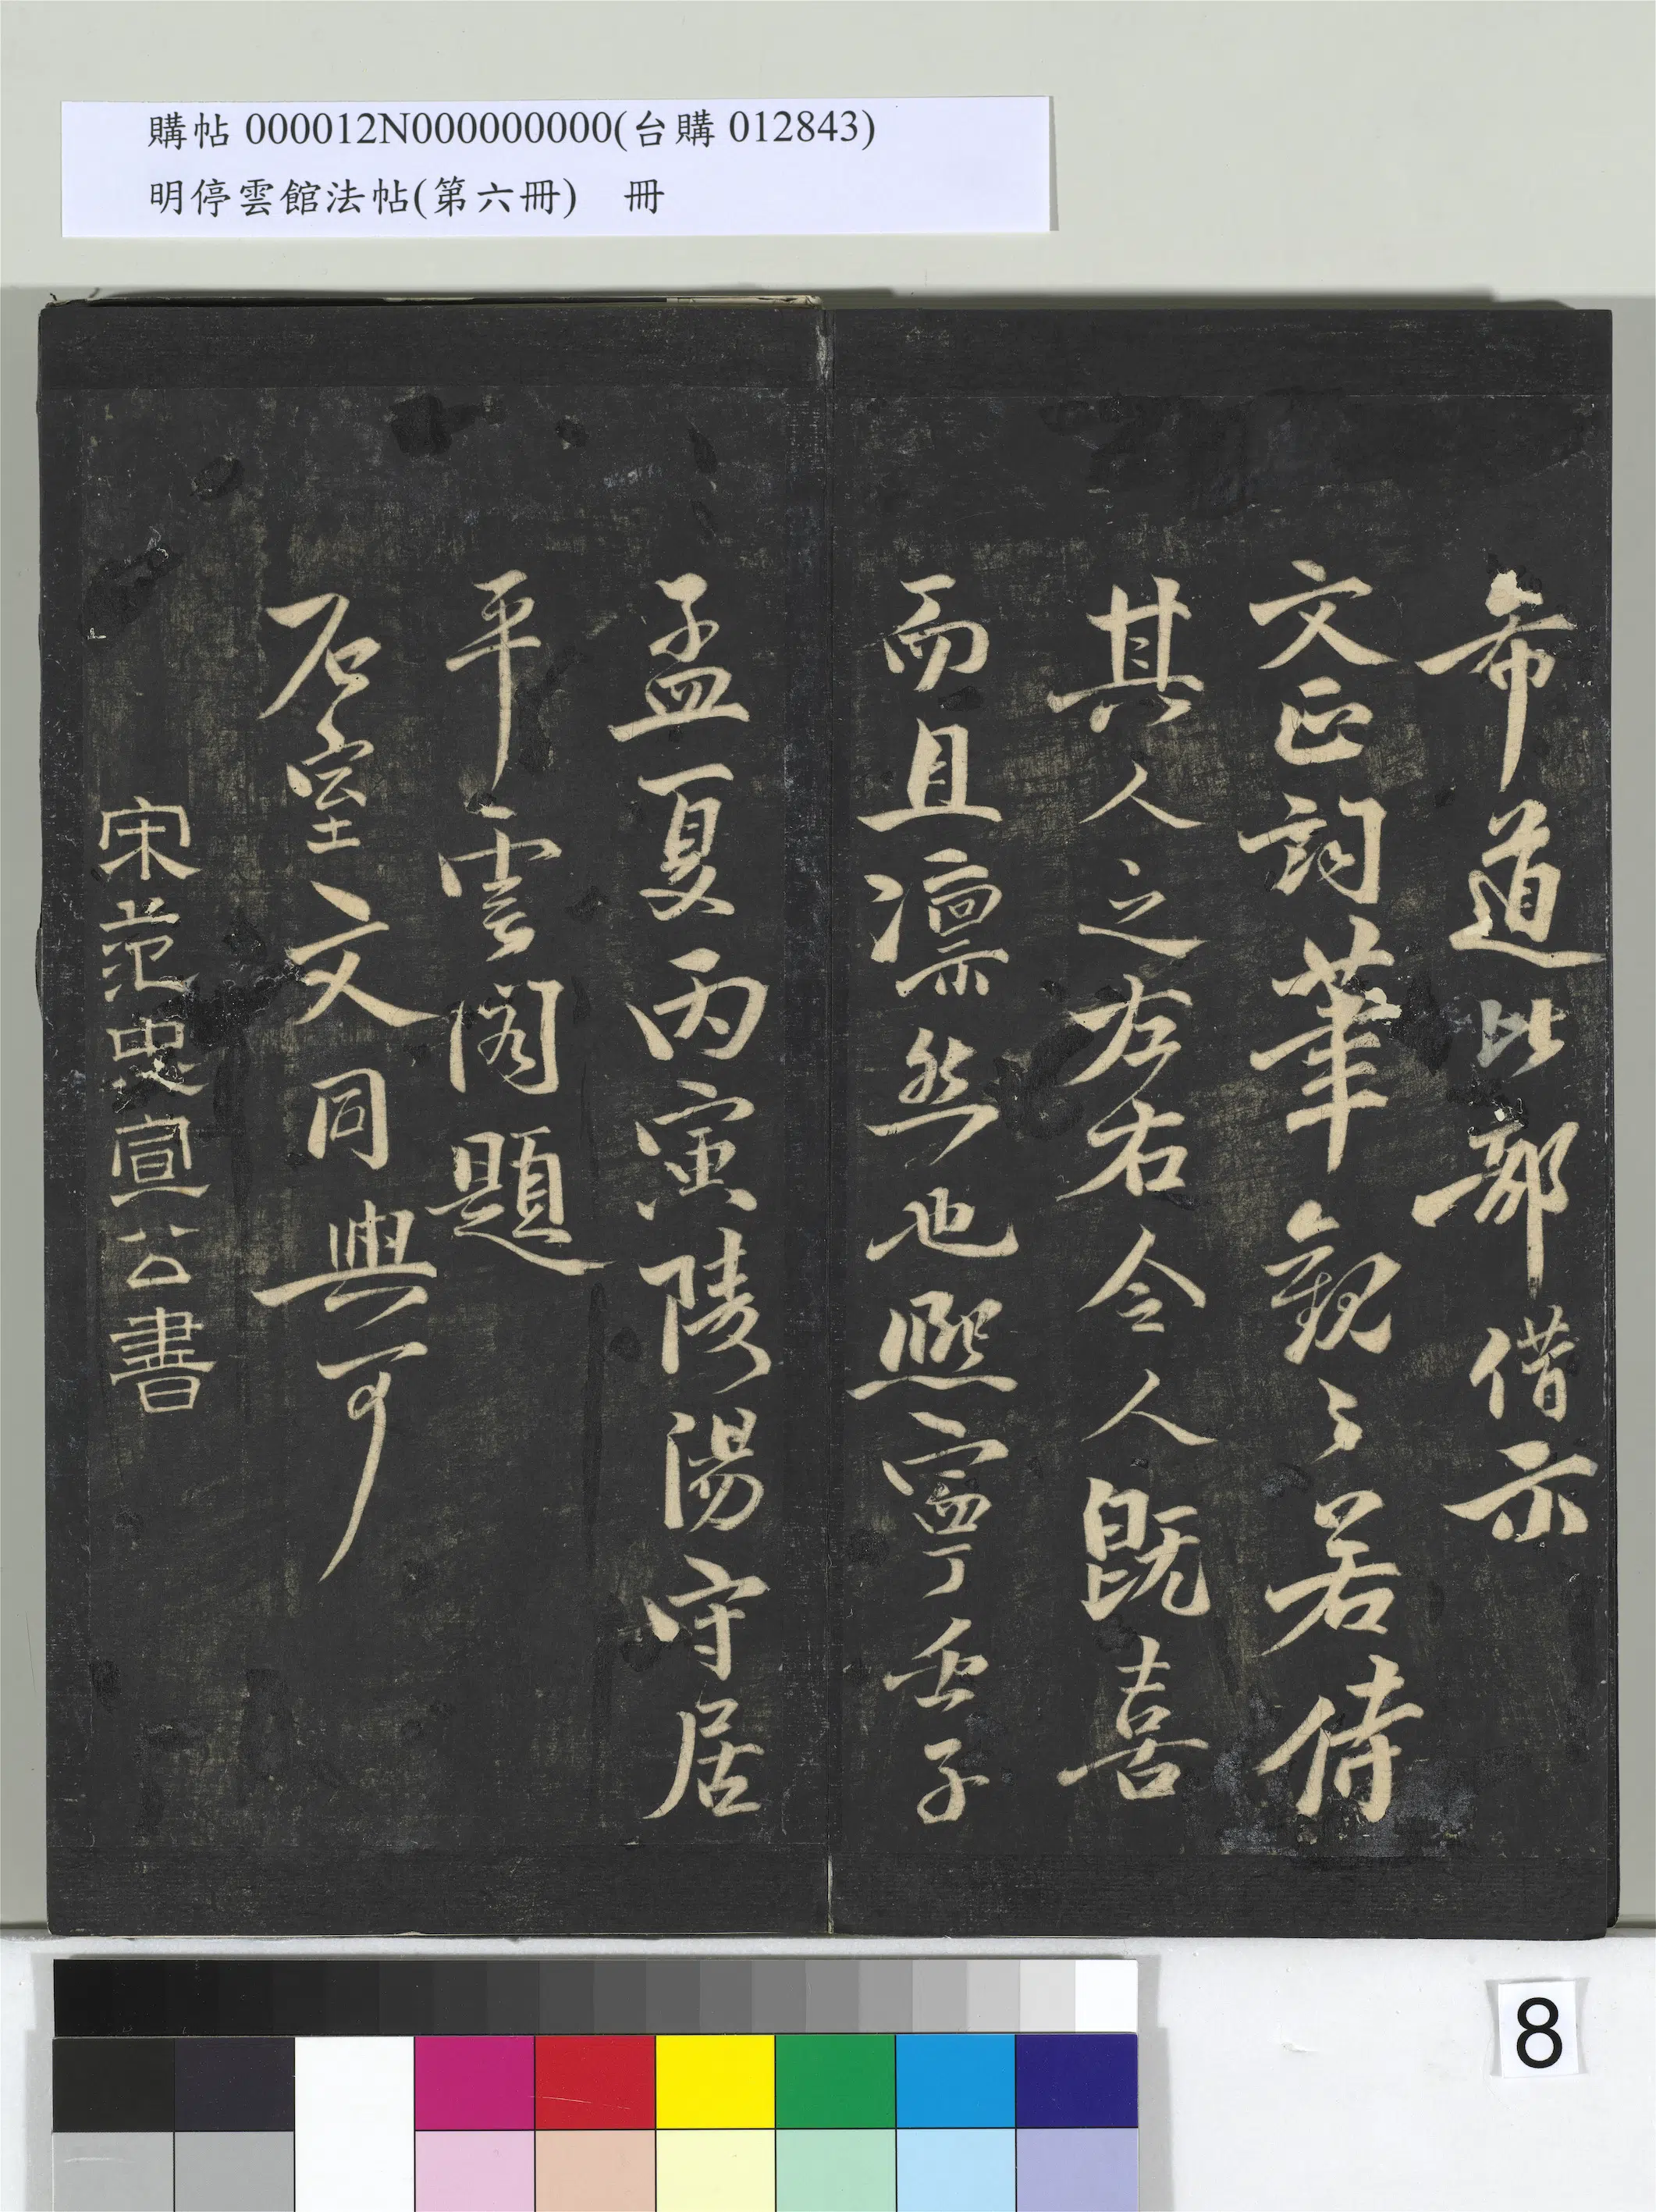 購帖 000012N000000000(台購 012843)
明停雲館法帖(第六冊) 冊
希道比部借示
文正詞筆觀之若侍
其人之左右令人既喜
而且凛然也熙寧壬子
孟夏丙寅陵陽守居
平雲閣題
石室文同與可
宋范忠宣公書
8